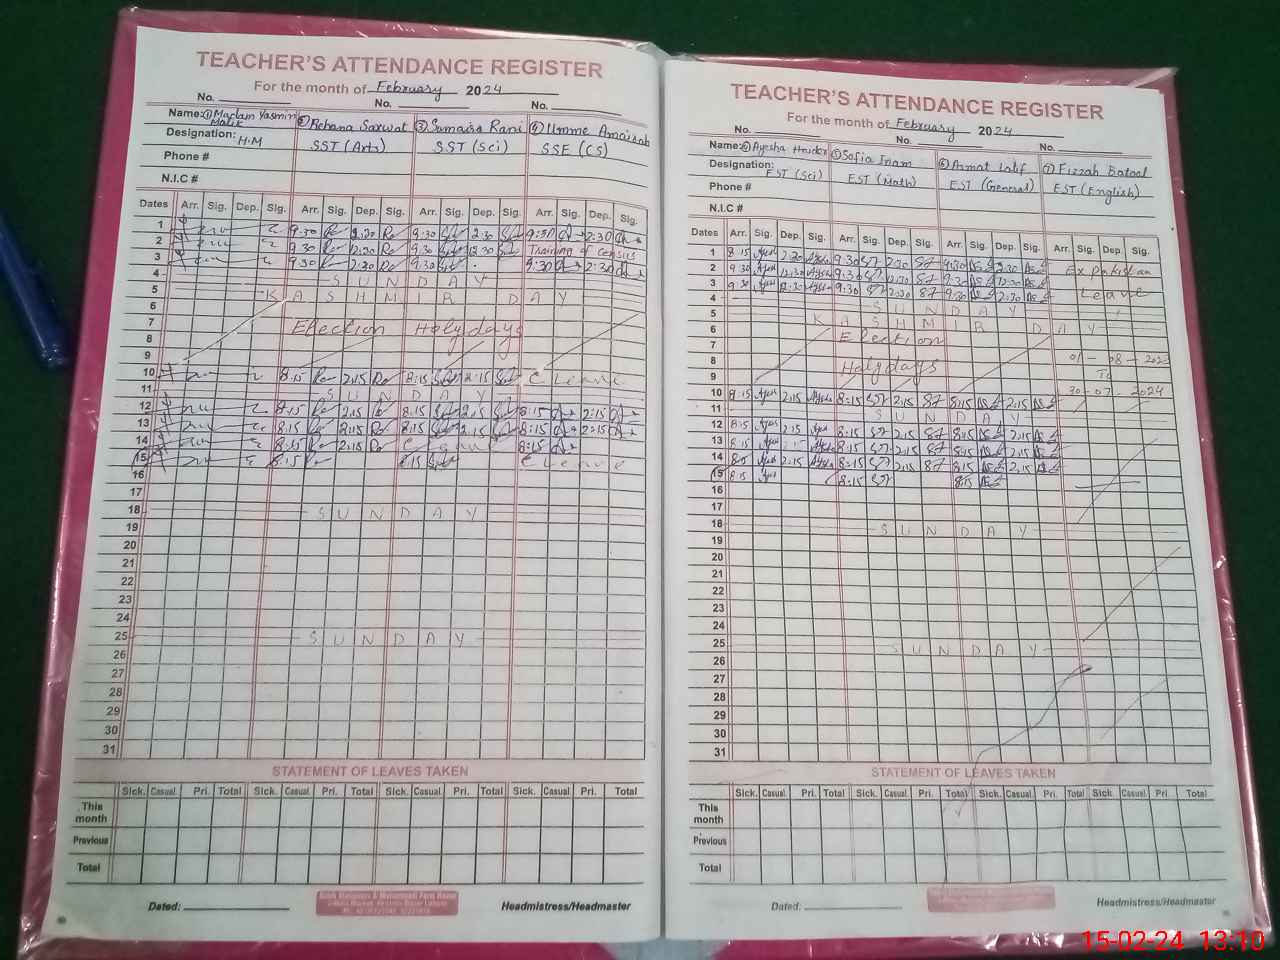 TEACHER'S ATTENDANCE REGISTER
For the month of February 2024
No. No. No.
Name: ① Madam Yasmin Malik ② Rehana Sarwat ③ Sumaira Rani ④ Umme Amairah
Designation: H.M SST (Arts) SST (Sci) SSE (CS)
Phone #
N.I.C #
Dates Arr. Sig. Dep. Sig. Arr. Sig. Dep. Sig. Arr. Sig. Dep. Sig. Arr. Sig. Dep. Sig.
1 9:30 2:30 9:30 2:30 9:30 2:30
2 9:30 12:30 9:30 12:30 Training of census
3 9:30 2:30 9:30 9:30 2:30
4 SUNDAY
5 KASHMIR DAY
6
7 Election Holydays
8
9
10 8:15 2:15 8:15 2:15 C Leave
11 SUNDAY
12 8:15 2:15 8:15 2:15 8:15 2:15
13 8:15 2:15 8:15 2:15 8:15 2:15
14 8:15 2:15 8:15
15 8:15 8:15 C Leave
16
17
18 SUNDAY
19
20
21
22
23
24
25 SUNDAY
26
27
28
29
30
31
STATEMENT OF LEAVES TAKEN
Sick. Casual. Pri. Total Sick. Casual. Pri. Total Sick. Casual. Pri. Total Sick. Casual. Pri. Total
This month
Previous
Total
Dated: Headmistress/Headmaster
TEACHER'S ATTENDANCE REGISTER
For the month of February 2024
No. No. No.
Name: Ayesha Haider Sofia Inam Asmat Latif ⑦ Fizzah Batool
Designation: EST (Sci) EST (Math) EST (General) EST (English)
Phone #
N.I.C #
Dates Arr. Sig. Dep. Sig. Arr. Sig. Dep. Sig. Arr. Sig. Dep. Sig. Arr. Sig. Dep. Sig.
1 8:15 2:30 9:30 2:30 9:30 2:30
2 9:30 12:30 9:30 12:30 9:30 12:30 Ex Pakistan
3 9:30 12:30 9:30 2:30 9:30 2:30 Leave
4 SUNDAY
5 KASHMIR DAY
6
7 Election
8 Holydays 01-08-2023
9 To
10 8:15 2:15 8:15 2:15 8:15 2:15 30-07-2024
11 SUNDAY
12 8:15 2:15 8:15 2:15 8:15 2:15
13 8:15 2:15 8:15 2:15 8:15 2:15
14 8:15 2:15 8:15 2:15 8:15 2:15
15 8:15 8:15 8:15
16
17
18 SUNDAY
19
20
21
22
23
24
25 SUNDAY
26
27
28
29
30
31
STATEMENT OF LEAVES TAKEN
Sick. Casual. Pri. Total Sick. Casual. Pri. Total Sick. Casual. Pri. Total Sick. Casual. Pri. Total
This month
Previous
Total
Dated: Headmistress/Headmaster
15-02-24 13:10